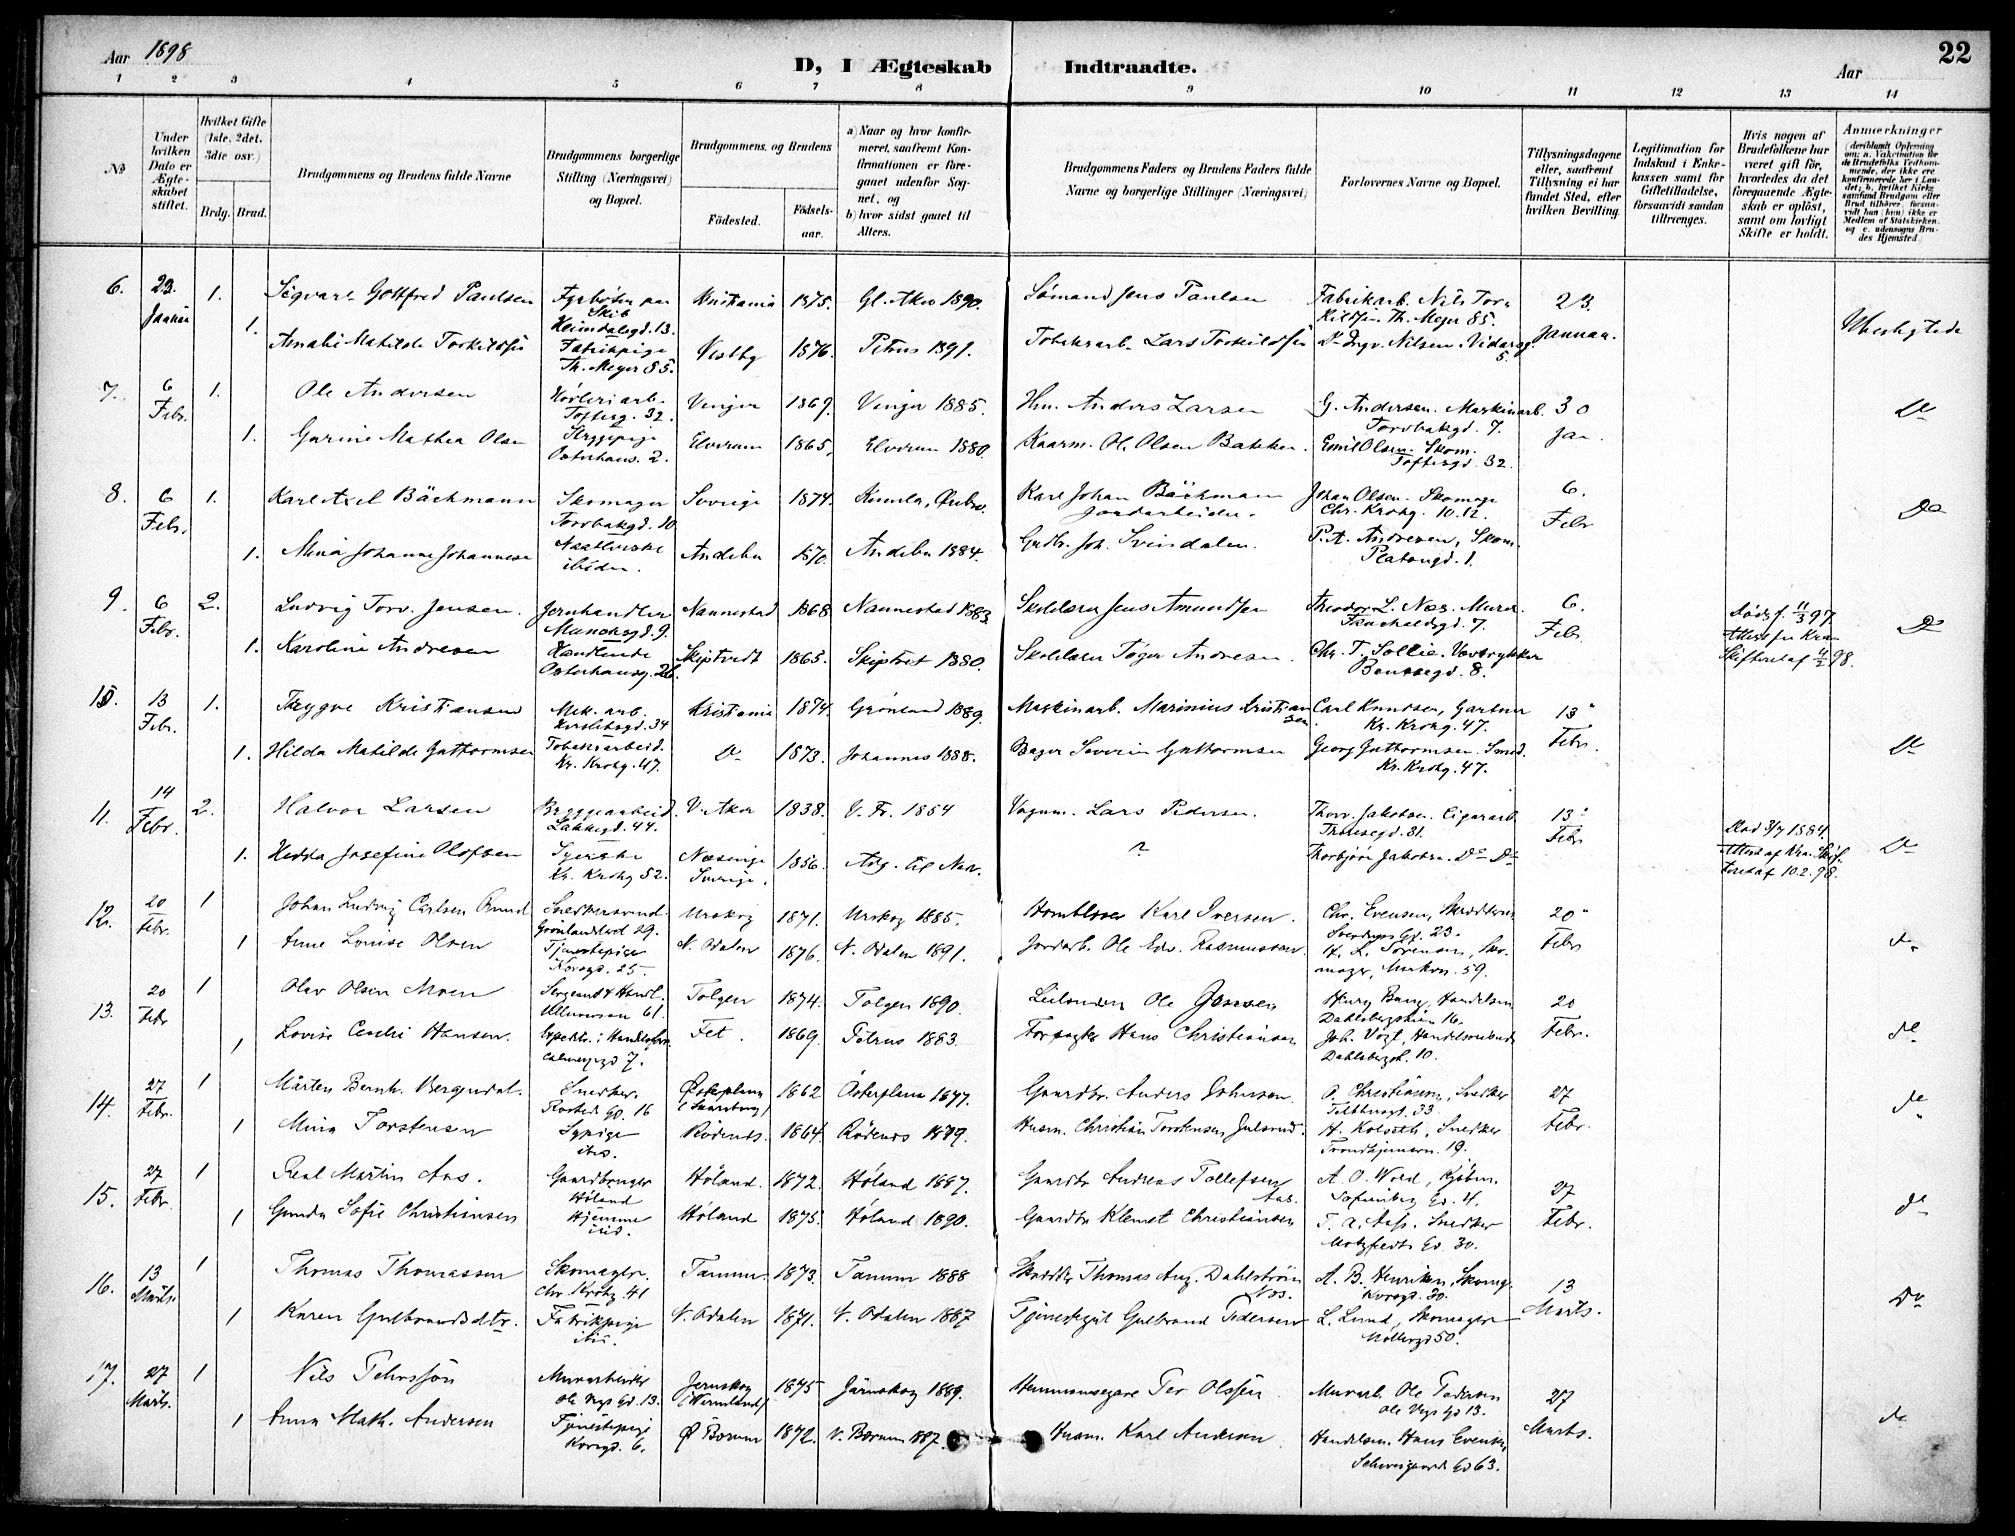 Aar 1898
D, I Ægteskab Indtraadte.
Aar
22
1 2 3 4 5 6 7 8 9 10 11 12 13 14
No.
Under hvilken Dato er Ægteskabet stiftet.
Hvilket Gifte (1ste, 2det, 3die osv.)
Brdg. Brud.
Brudgommens og Brudens fulde Navne
Brudgommens borgerlige Stilling (Næringsvei) og Bopæl.
Brudgommens og Brudens
Fødested.
Fødselsaar.
a) Naar og hvor konfirmeret, saafremt Konfirmationen er foregaaet udenfor Sognet, og
b) hvor sidst gaaet til Alters.
Brudgommens Faders og Brudens Faders fulde Navne og borgerlige Stillinger (Næringsvei)
Forlovernes Navne og Bopæl.
Tillysningsdagene eller, saafremt Tillysning ei har fundet Sted, efter hvilken Bevilling.
Legitimation for Indskud i Enkekassen samt for Giftetilladelse, forsaavidt saadan tiltrænges.
Hvis nogen af Brudefolkene har været gift før, hvorledes da det foregaaende Ægteskab er opløst, samt om lovligt Skifte er holdt.
Anmærkninger
6. 23. Januar 1. Sigvart Gottfred Paulsen Fyrbøder paa Skib Heimdalsgd. 13. Kristiania 1875. Gl. Aker 1890. Sømand Jens Paulsen Fabrikarb. Nils Torkildsen Th. Meyer 85. 23. Januar.
1. Amalie Matilde Torkildsen Fabrikpige Th. Meyer 85. Vestby 1876. Petrus 1891. Tobaksarb. Lars Torkildsen Do Ingv. Nilsen. Vidarsg. 5. Ubeslegtede
7. 6 Febr. 1. Ole Andersen Høvleriarb. Tofteg. 32. Vinger 1869. Vinger 1885. Hm. Anders Larsen G. Andersen. Maskinarb. Torvbakgd. 7. 30 Jan. Do
1. Gurine Mathea Olsen Strygepige Osterhaus. 2. Elverum 1865. Elverum 1880. Kaarm. Ol. Olsen Bakken. Emil Olsen. Skom. Toftesgd. 32.
8. 6 Febr. 1. Karl Axel Bäckmann Skomager Torvbakgd. 10 Sverige 1874. Kumla, Ørebro. Karl Johan Bäckman Jordarbeider. Johan Olsen. Skomager Chr. Krohg. 10.12. 6. Febr Do
1. Mina Johanne Johannesen ibiden. Andebu 1870. Andebu 1884. Gudbr. Joh. Svindalen. P. A. Andresen, Skom. Platousgd. 1.
9. 6 Febr. 2. Ludvig Torv. Jensen. Jernhandler Munchsgd. 9. Nannestad 1868 Nannestad 1883. Skolelærer Jens Amundsen Theodor L. Næs. Murer. 7. 6. Febr. Dødsf. 11/3 97 Attest fra Kra. Skifteret af 4/2 98. Do
1. Karoline Andresen Handlende Osterhausg. 26. Skiptvedt 1865. Skiptvet 1880. Skolelærer Tøger Andresen. Chr. T. Sollie. Bentsegd. 8.
10. 13 Febr. 1. Trygve Kristiansen Mek. arb. 34 Kristiania 1874. Grønland 1889. Maskinarb. Marinius Kristiansen Carl Knudsen, Gartner Kr. Krohg. 47. 13 Febr.
1. Hilda Matilde Guttormsen Tobaksarbeid. Kr. Krohg. 47. Do 1873. Johannes 1888. Bager Severin Guttormsen Georg Guttormsen. Smed. Kr. Krohg. 47. Do
11. 14 Febr. 2. Halvor Larsen Bryggearbeid. Lakkegd. 44. V. Aker 1838. V. Fr. 1854 Vognm. Lars Pedersen. Thorv. Jakobsen. Cigararb. 31. 13 Febr Død 3/7 1884. Attest af Kra. Skifteret af 10.2.98. Do
1. Hedda Josefine Olofsen Syerske Kr. Krohg 52. Næsinge Sverige. 1856. Adg. til Nadv. ? Thorbjørn Jakobsen. Do Do
12. 20 Febr. 1 Johan Ludvig Carlsen Snedkersvend. Grønlandsled 29. Urskog 1871. Urskog 1885. Karl Iversen. Chr. Evensen, Sverdrups Gd. 23. 20 Febr do
1 Anne Lovise Olsen Tjenestepige Korsgd. 25 N. Odalen 1876. N. Odalen 1891. Jordarb. Ole Edv. Rasmussen. H. L. Sørensen, Skomager, Markvn. 59.
13. 20 Febr 1 Olav Olsen Moen Sergeant & Handl. Ullevaalsvn 61. Tolgen 1874. Tolgen 1890. Leilending Ole Jonsen Henry Bang, Handelsm Dahlsbergstien 16. 20 Febr. do
1 Lovise Cecilie Hansen. 7. Fet. 1869. Petrus 1883. Forpagter Hans Christiansen Joh. Vogt, Dahlsbergst. 10.
14. 27 Febr. 1 Mårten Bernh. Bergendal. Snedker. Rosteds Gd. 16 Österplana (Skaraborg) 1862 Österplana 1877. Gaardbr. Anders Johnsen. O. Christiansen, Snedker Toftesgt. 33 27 Febr. do
1 Mina Torstensen Sypige ibid. Rødenes. 1864. Rødenes 1879. Husm. Christian Torstensen Julsrud. H. Kolseth, Snedker Trondhjemsvn. 19.
15. 27 Febr. 1 Paul Martin Aas. Gaardbruger Høland Høland. 1872. Høland 1887. Gaardbr. Andreas Tollefsen Aas. A. O. Wold, Kjøbm. Sofienberg Gd. 4. 27 Febr. do
1 Gunda Sofie Christiansen Hjemme ibid. Høland 1875. Høland 1890. Gaardbr Klemet Christiansen T. A. Aas. Snedker Motzfeldts Gd. 30.
16. 13 Marts. 1 Thomas Thomassen Skomager. Chr. Krohg. 41 Tanum. 1873. Tanum 1888 Skrædder Thomas Aug. Dahlström Næs. A. B. Henriksen, Skomag. Korsgd. 30. 13 Marts. Do
1 Karen Gulbrandsdtr. Fabrikpige ibid. N. Odalen 1871. N. Odalen 1887 Tjenestegut Gulbrand Pedersen L. Lund, Skomager Møllergd 50.
17. 27 Marts. 1 Nils Pehrsson Murarbeider Ole Vigs Gd. 13. Jernskog (Wermland) 1875 Järnskog 1889. Hemmansegare Per Olsson Murarb. Ole Pedersen Ole Vigs Gd 13. 27 Marts. do
1 Anna Math. Andersen Tjenestepige Korsgd. 6. Ø Borum 1872. V. Bærum 1887. Husm. Karl Andersen Handelsm. Hans Evensen Schweigaards Gd 63.